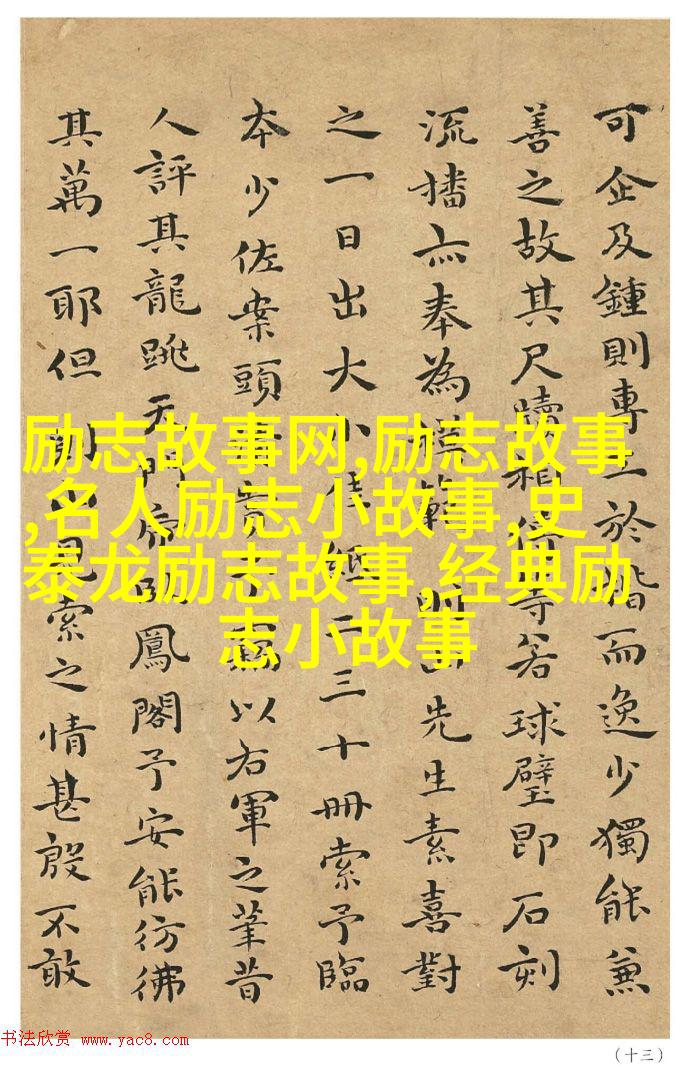 可企及鍾則專工於楷而逸少獨能兼
善之故其尺牘相傳等若球璧即石刻
流播亦奉為模範 先生素喜對
之一日出大小佳紙二三十冊索予臨
本少佐案頭 以右軍之筆昔
人評其龍跳天門虎臥鳳閣予安能彷彿
其萬一耶但 見索之情甚殷不敢
励志故事网,励志故事
,名人励志小故事,史
泰龙励志故事,经典励
志小故事
书法欣赏 www.yac8.com
(十三)